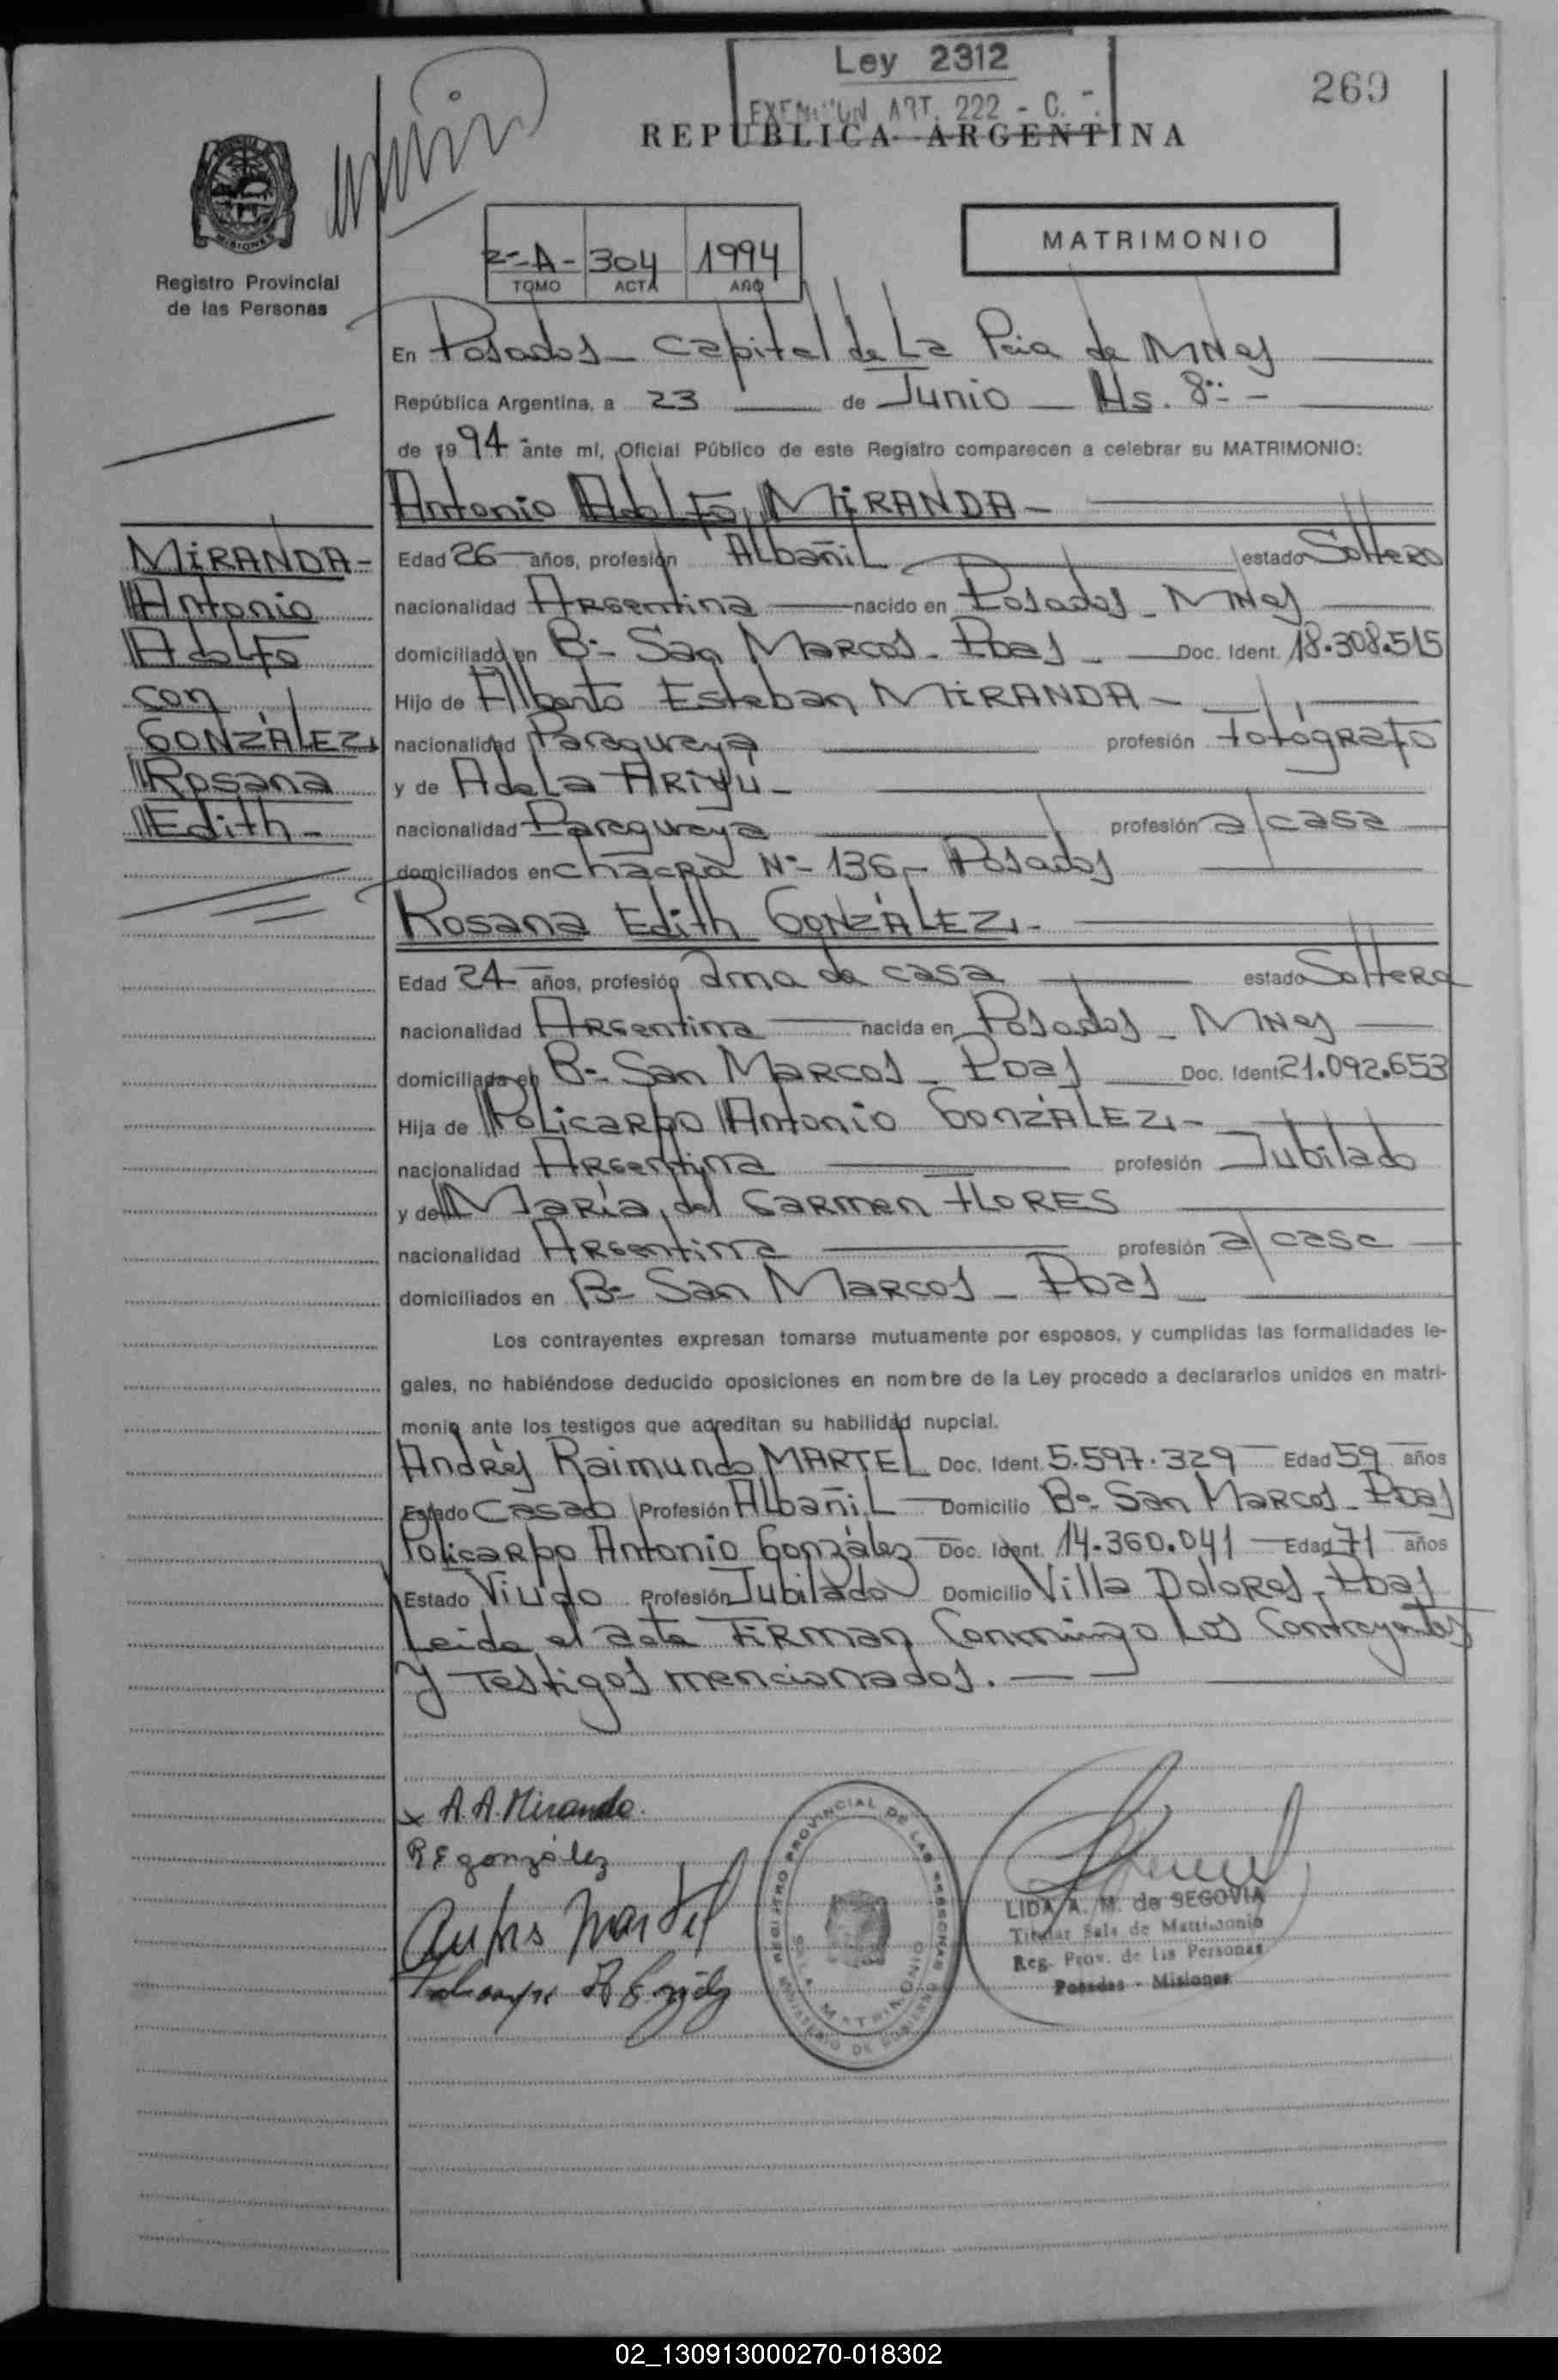 Ley 2312
EXENCION ART. 222 - C.
269
REPUBLICA ARGENTINA
MISIONES
Registro Provincial
de las Personas
2º-A- 304 1994
TOMO ACTA AÑO
MATRIMONIO
En Posadas - Capital de La Pcia de Mnes
República Argentina, a 23 de Junio - Hs. 8:-
de 1994 ante mí, Oficial Público de este Registro comparecen a celebrar su MATRIMONIO:
Antonio Adolfo MIRANDA -
MIRANDA -
Antonio
Adolfo
con
GONZÁLEZ,
Rosana
Edith -
Edad 26 años, profesión Albañil estado Soltero
nacionalidad Argentina nacido en Posadas - Mnes
domiciliado en Bº- San Marcos - Pdas - Doc. Ident. 18.308.515
Hijo de Alberto Esteban MIRANDA -
nacionalidad Paraguaya profesión Fotógrafo
y de Adela ARIYÚ -
nacionalidad Paraguaya profesión a/casa
domiciliados en Chacra Nº- 136 - Posadas
Rosana Edith GONZÁLEZ, -
Edad 24 años, profesión ama de casa estado Soltera
nacionalidad Argentina nacida en Posadas - Mnes
domiciliada en Bº- San Marcos - Pdas Doc. Ident. 21.092.653
Hija de Policarpo Antonio GONZÁLEZ, -
nacionalidad Argentina profesión Jubilado
y de María del Carmen FLORES
nacionalidad Argentina profesión a/casa
domiciliados en Bº- San Marcos - Pdas -
Los contrayentes expresan tomarse mutuamente por esposos, y cumplidas las formalidades le-
gales, no habiéndose deducido oposiciones en nombre de la Ley procedo a declararlos unidos en matri-
monio ante los testigos que acreditan su habilidad nupcial.
Andrés Raimundo MARTEL Doc. Ident. 5.597.329 Edad 59 años
Estado Casado Profesión Albañil Domicilio Bº- San Marcos - Pdas
Policarpo Antonio González Doc. Ident. 14.360.041 Edad 71 años
Estado Viudo Profesión Jubilado Domicilio Villa Dolores - Pdas
Leida el acta Firman Conmingo Los Contrayentes
y Testigos mencionados. -
x A.A. Miranda.
R E gonzález
REGISTRO PROVINCIAL DE LAS PERSONAS
SALA MATRIMONIO
MINISTERIO DE GOBIERNO
LIDA A. M. de SEGOVIA
Titular Sala de Matrimonio
Reg. Prov. de las Personas
Posadas - Misiones
02_130913000270-018302